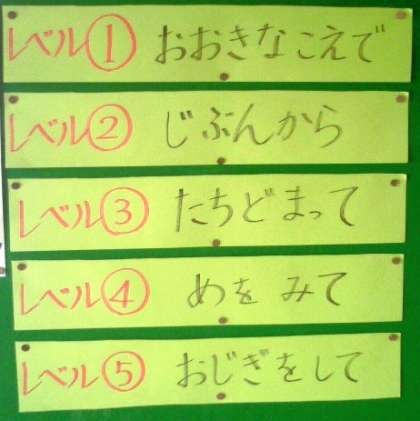 レベル① おおきなこえで
レベル② じぶんから
レベル③ たちどまって
レベル④ めを みて
レベル⑤ おじぎをして